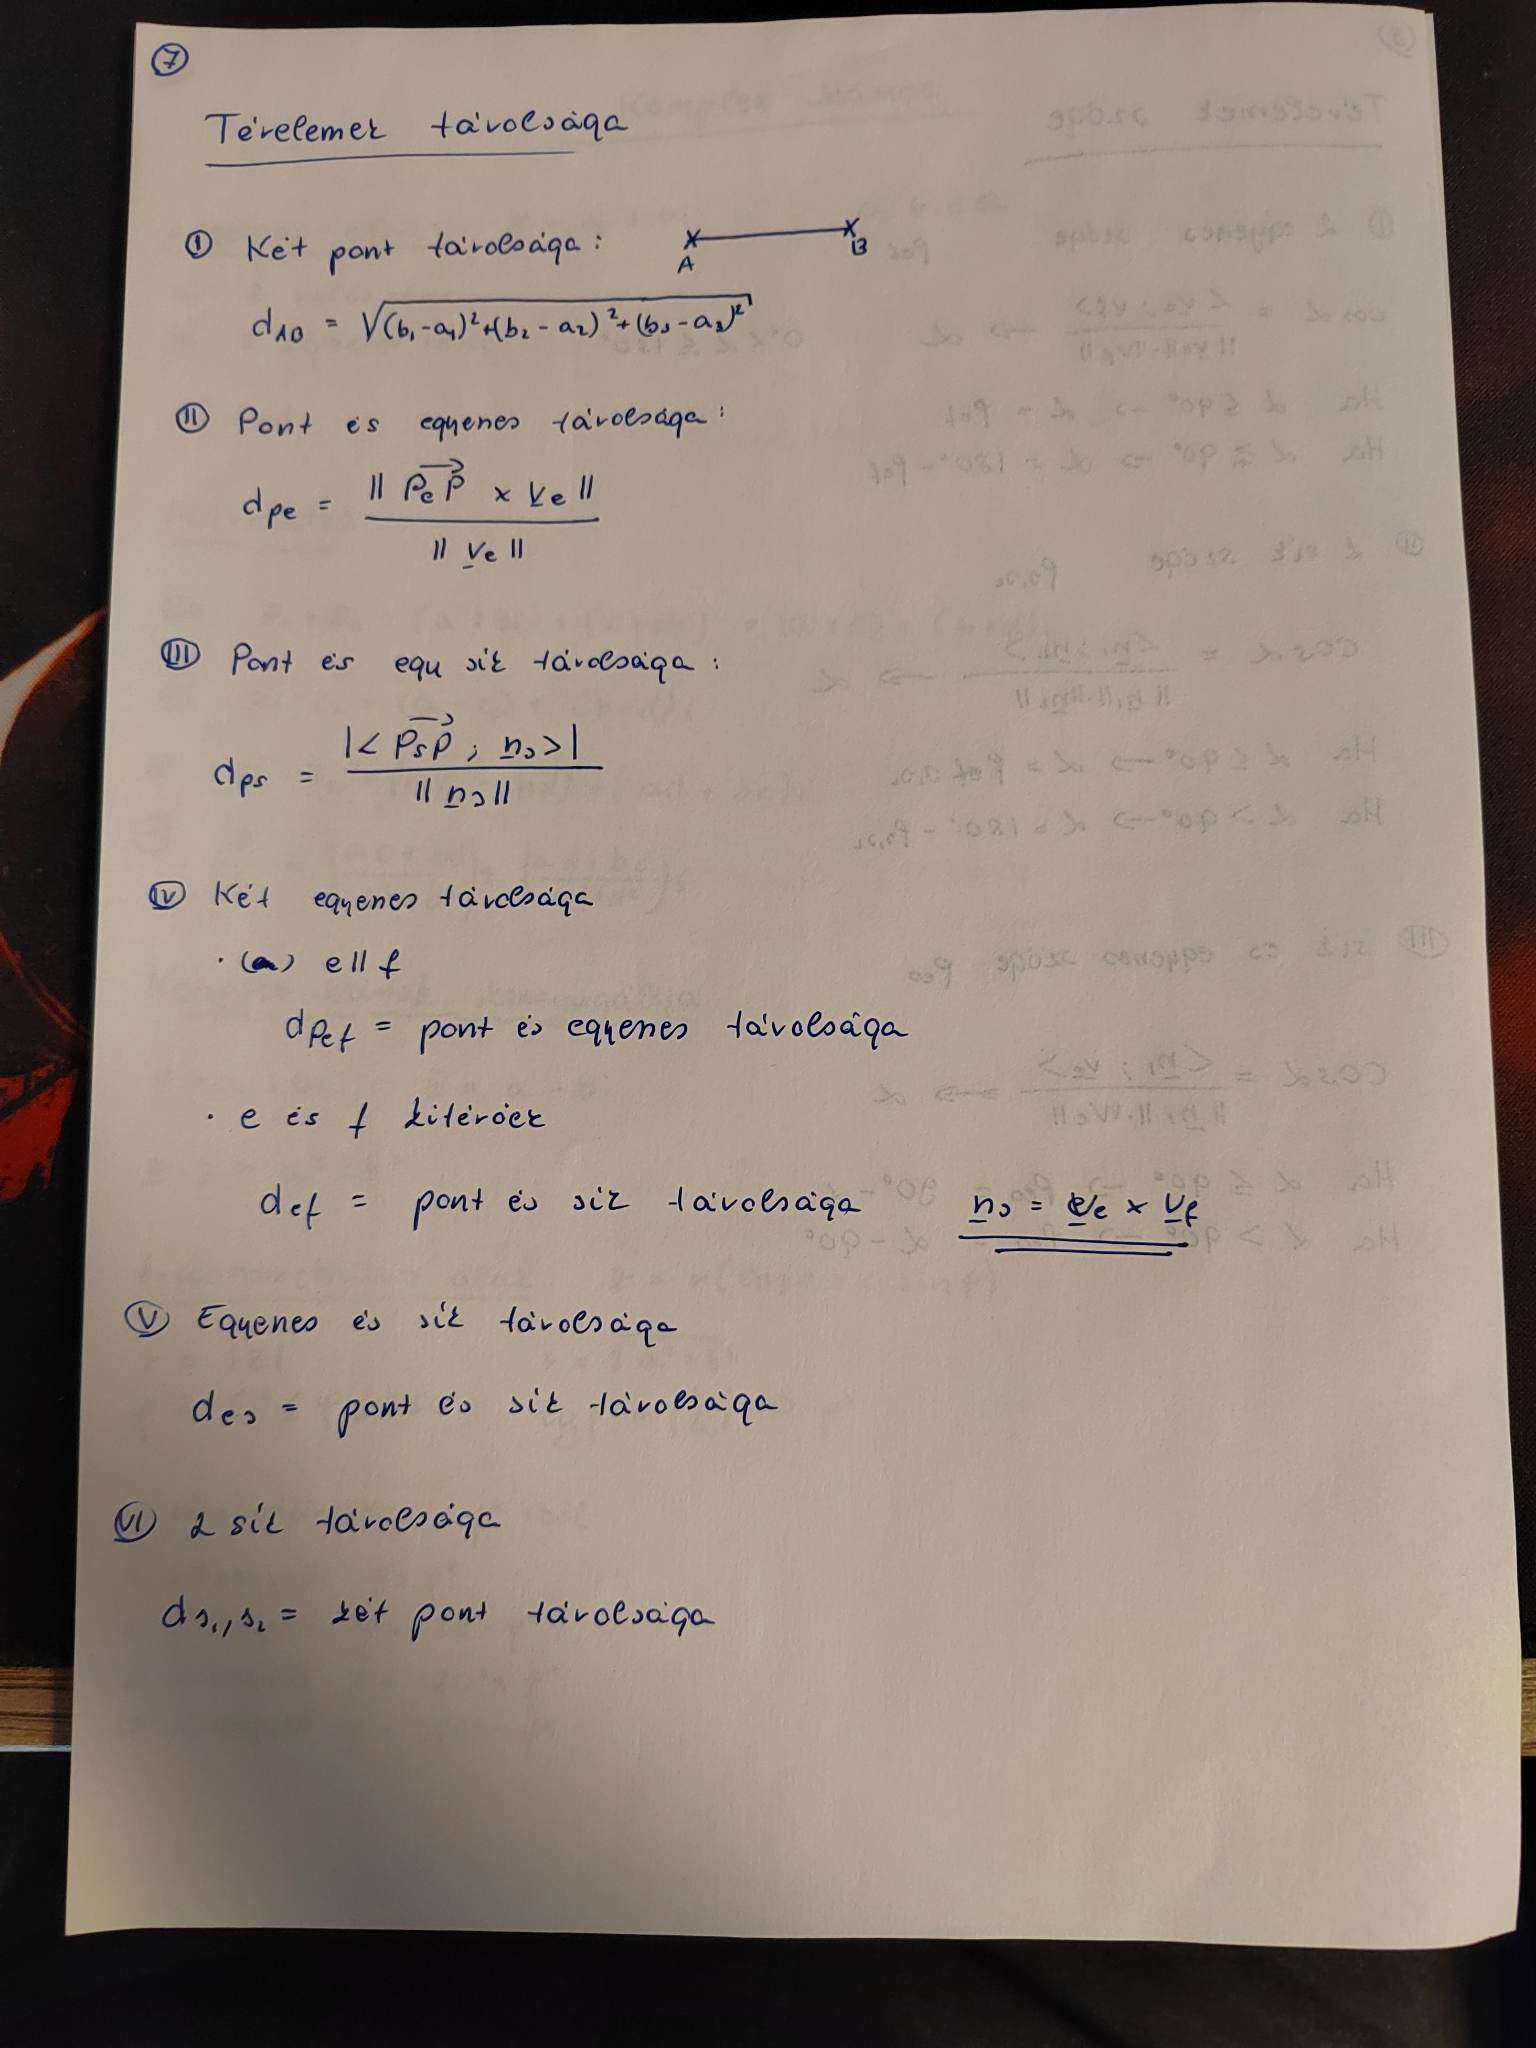 7
Térelemek távolsága
I Két pont távolsága:
A B
d_AB = √((b₁-a₁)²+(b₂-a₂)²+(b₃-a₃)²)
II Pont és egyenes távolsága:
d_pe = ‖P_eP→ × v_e‖ / ‖v_e‖
III Pont és egy sík távolsága:
d_ps = |<P_sP→ ; n_s>| / ‖n_s‖
IV Két egyenes távolsága
· (a) e∥f
d_Pef = pont és egyenes távolsága
· e és f kitérőek
d_ef = pont és sík távolsága n_s = v_e × v_f
V Egyenes és sík távolsága
d_es = pont és sík távolsága
VI 2 sík távolsága
d_s₁,s₂ = két pont távolsága